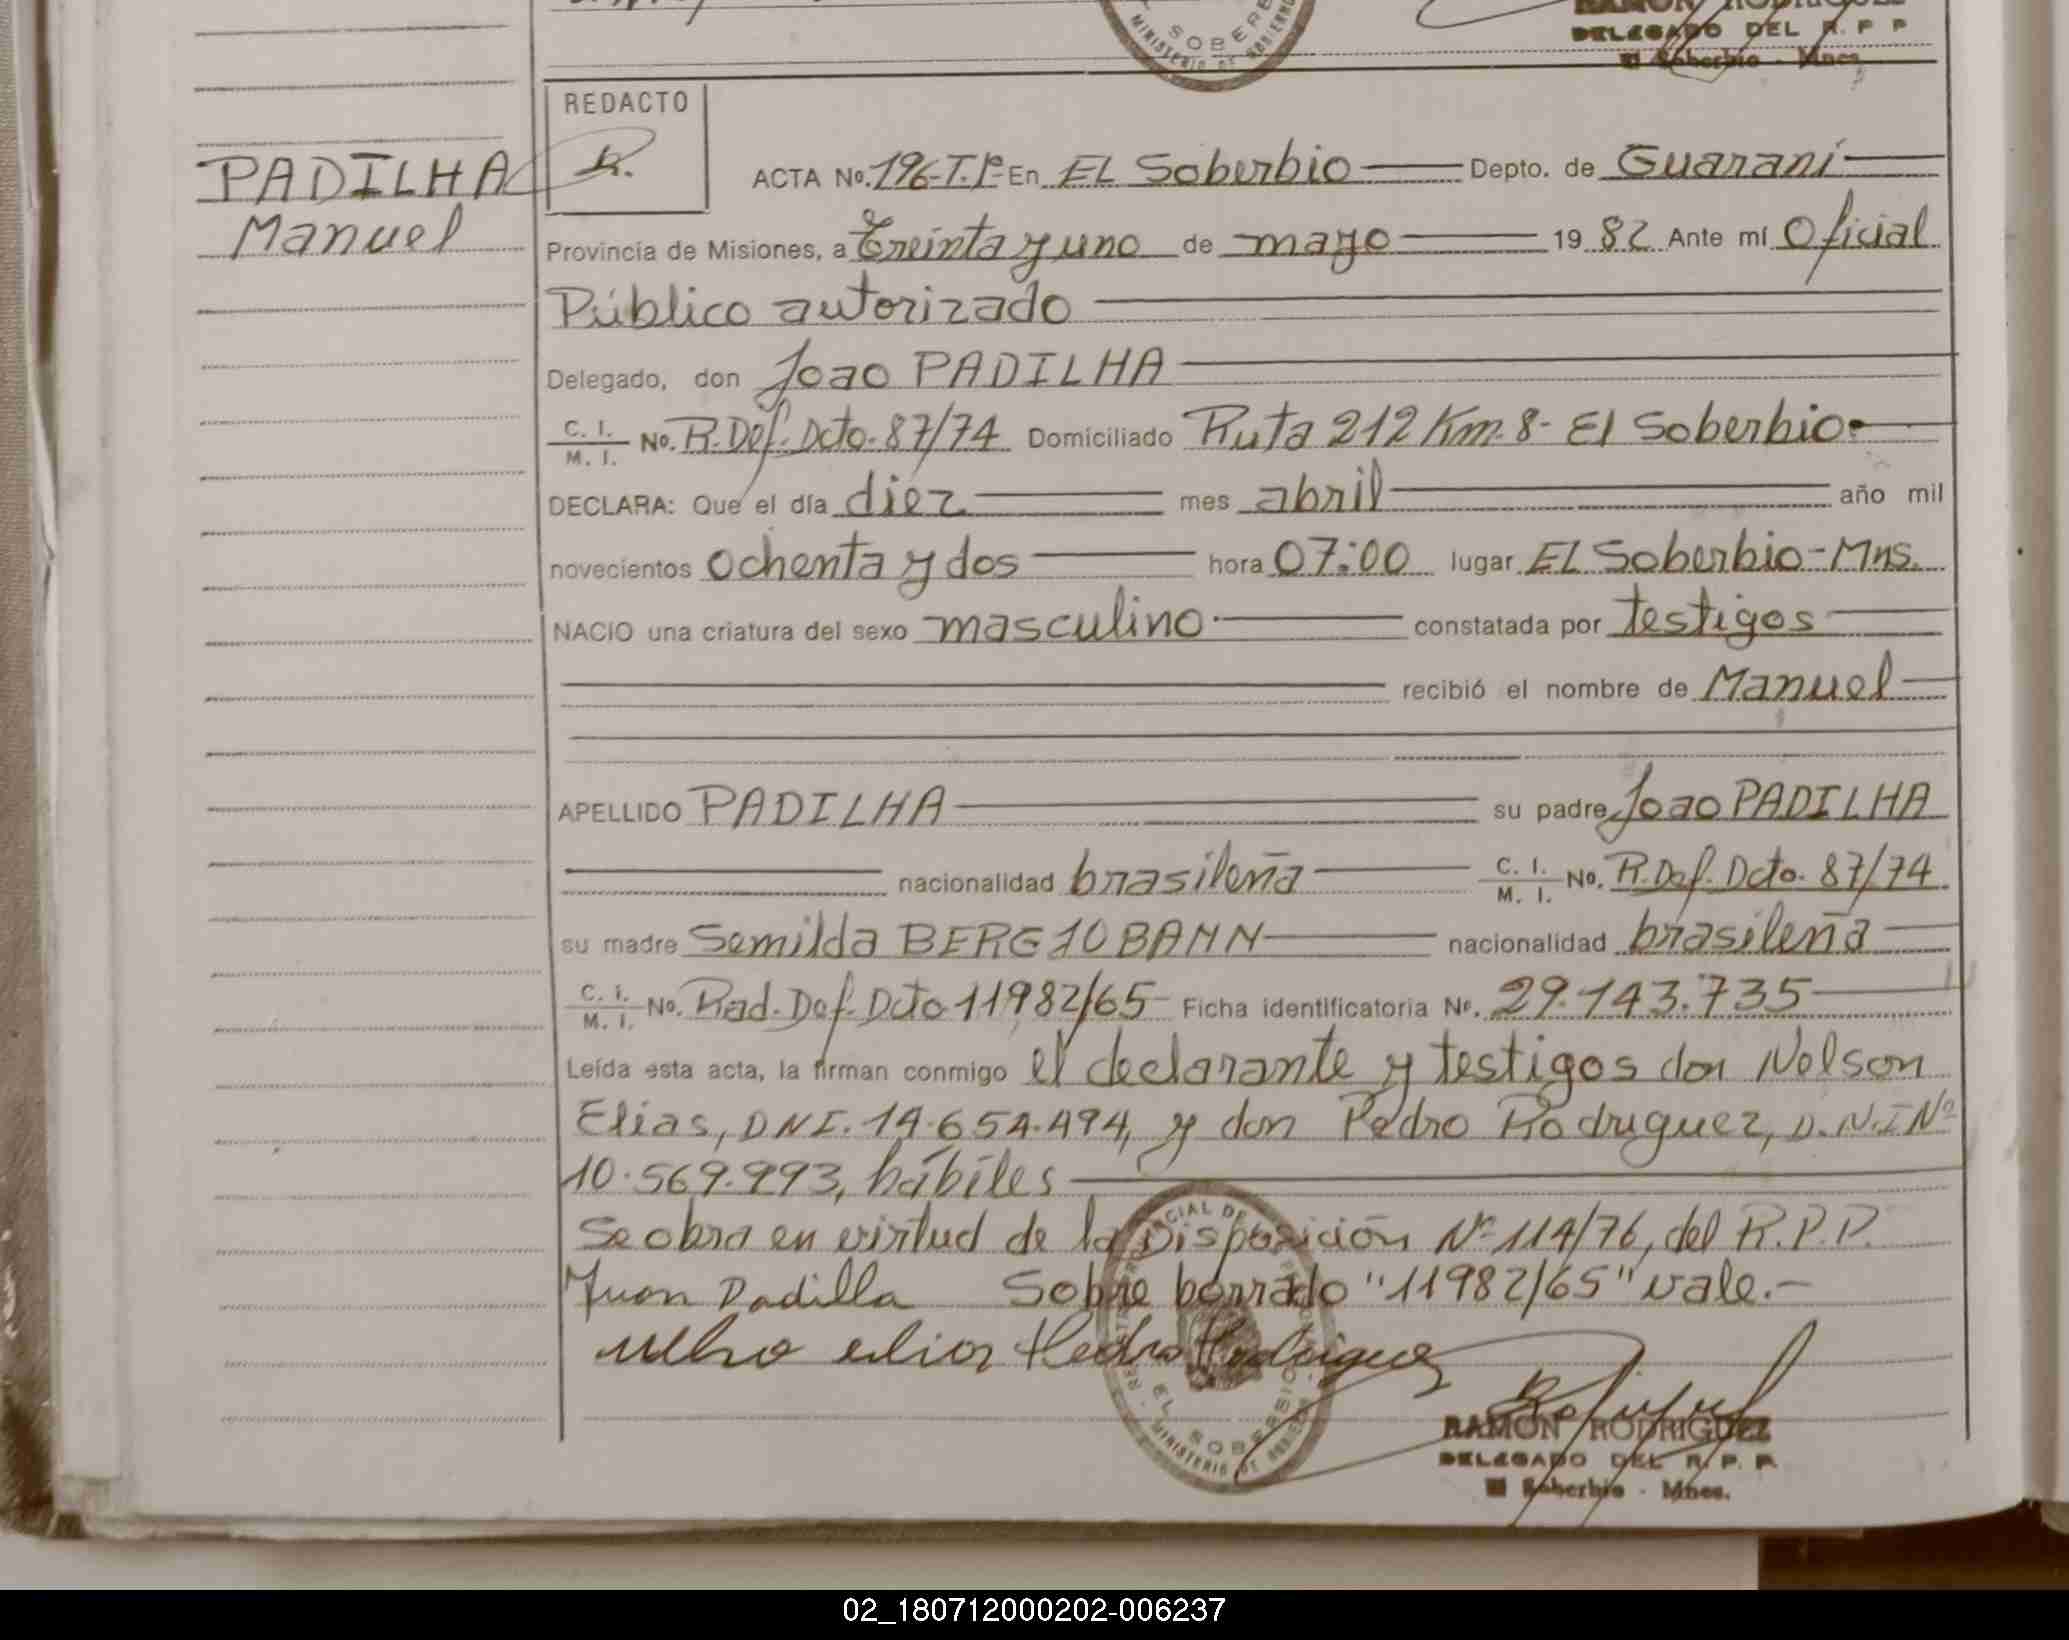 SOBERBIO
MINISTERIO DE GOBIERNO
RAMON RODRIGUEZ
DELEGADO DEL R. P. P
El Soberbio - Mnes
REDACTO
R.
PADILHA
Manuel
ACTA No. 196-T.Iº- En EL Soberbio Depto. de Guaraní
Provincia de Misiones, a treinta y uno de mayo 19 82 Ante mí Oficial
Público autorizado
Delegado, don Joao PADILHA
C. I. / M. I. No. R.Def. Dcto. 87/74 Domiciliado Ruta 212 Km. 8- El Soberbio-
DECLARA: Que el día diez mes abril año mil
novecientos ochenta y dos hora 07:00 lugar EL Soberbio-Mns.
NACIO una criatura del sexo masculino constatada por testigos
recibió el nombre de Manuel
APELLIDO PADILHA su padre Joao PADILHA
nacionalidad brasileña C. I. / M. I. No. R.Def. Dcto. 87/74
su madre Semilda BERGLOBANN nacionalidad brasileña
C. I. / M. I. No. Rad. Def. Dcto 11982/65 Ficha identificatoria Nº. 29.143.735
Leída esta acta, la firman conmigo el declarante y testigos don Nelson
Elias, DNI. 14.654.494, y don Pedro Rodriguez, D.N.I Nº
10.569.993, hábiles
Se obra en virtud de la Disposición Nº 114/76, del R.P.P.
Juan Padilla Sobre borrado "11982/65" vale.-
elias Pedro Rodriguez
EL SOBERBIO
MINISTERIO DE GOBIERNO
RAMON RODRIGUEZ
DELEGADO DEL R. P. P.
El Soberbio - Mnes.
02_180712000202-006237